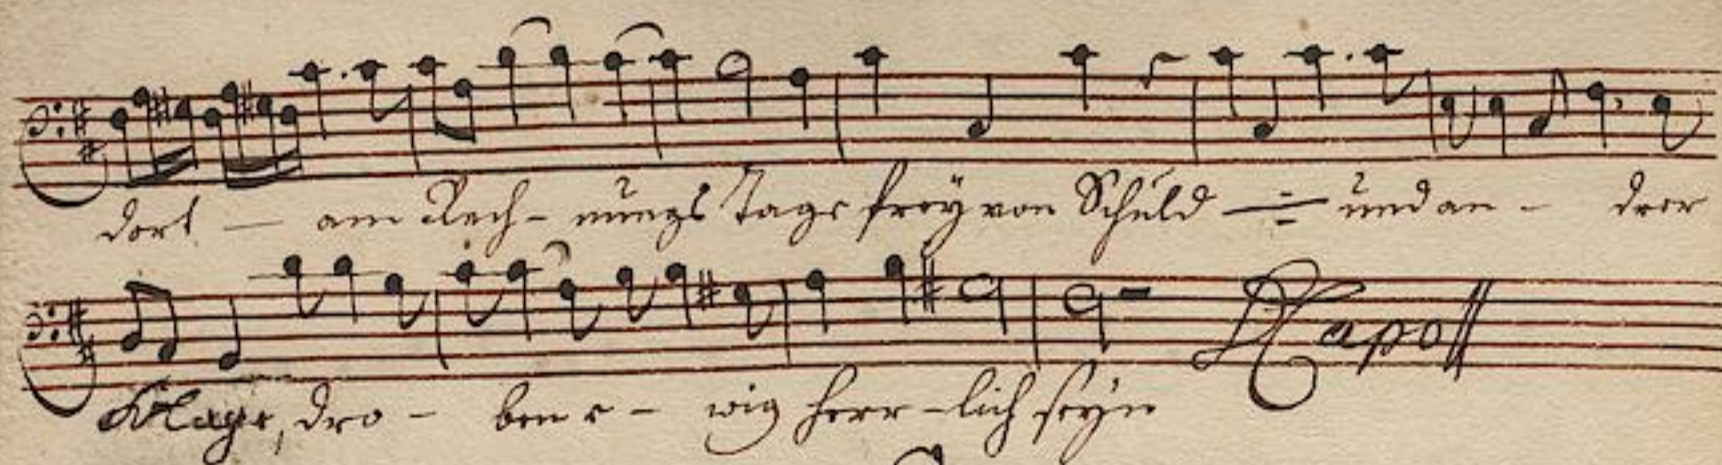 dort — am Rech- nungs Tage frey von Schuld ÷ und an - drer
Klage, dro - ben e - wig herr - lich seyn Da Capo